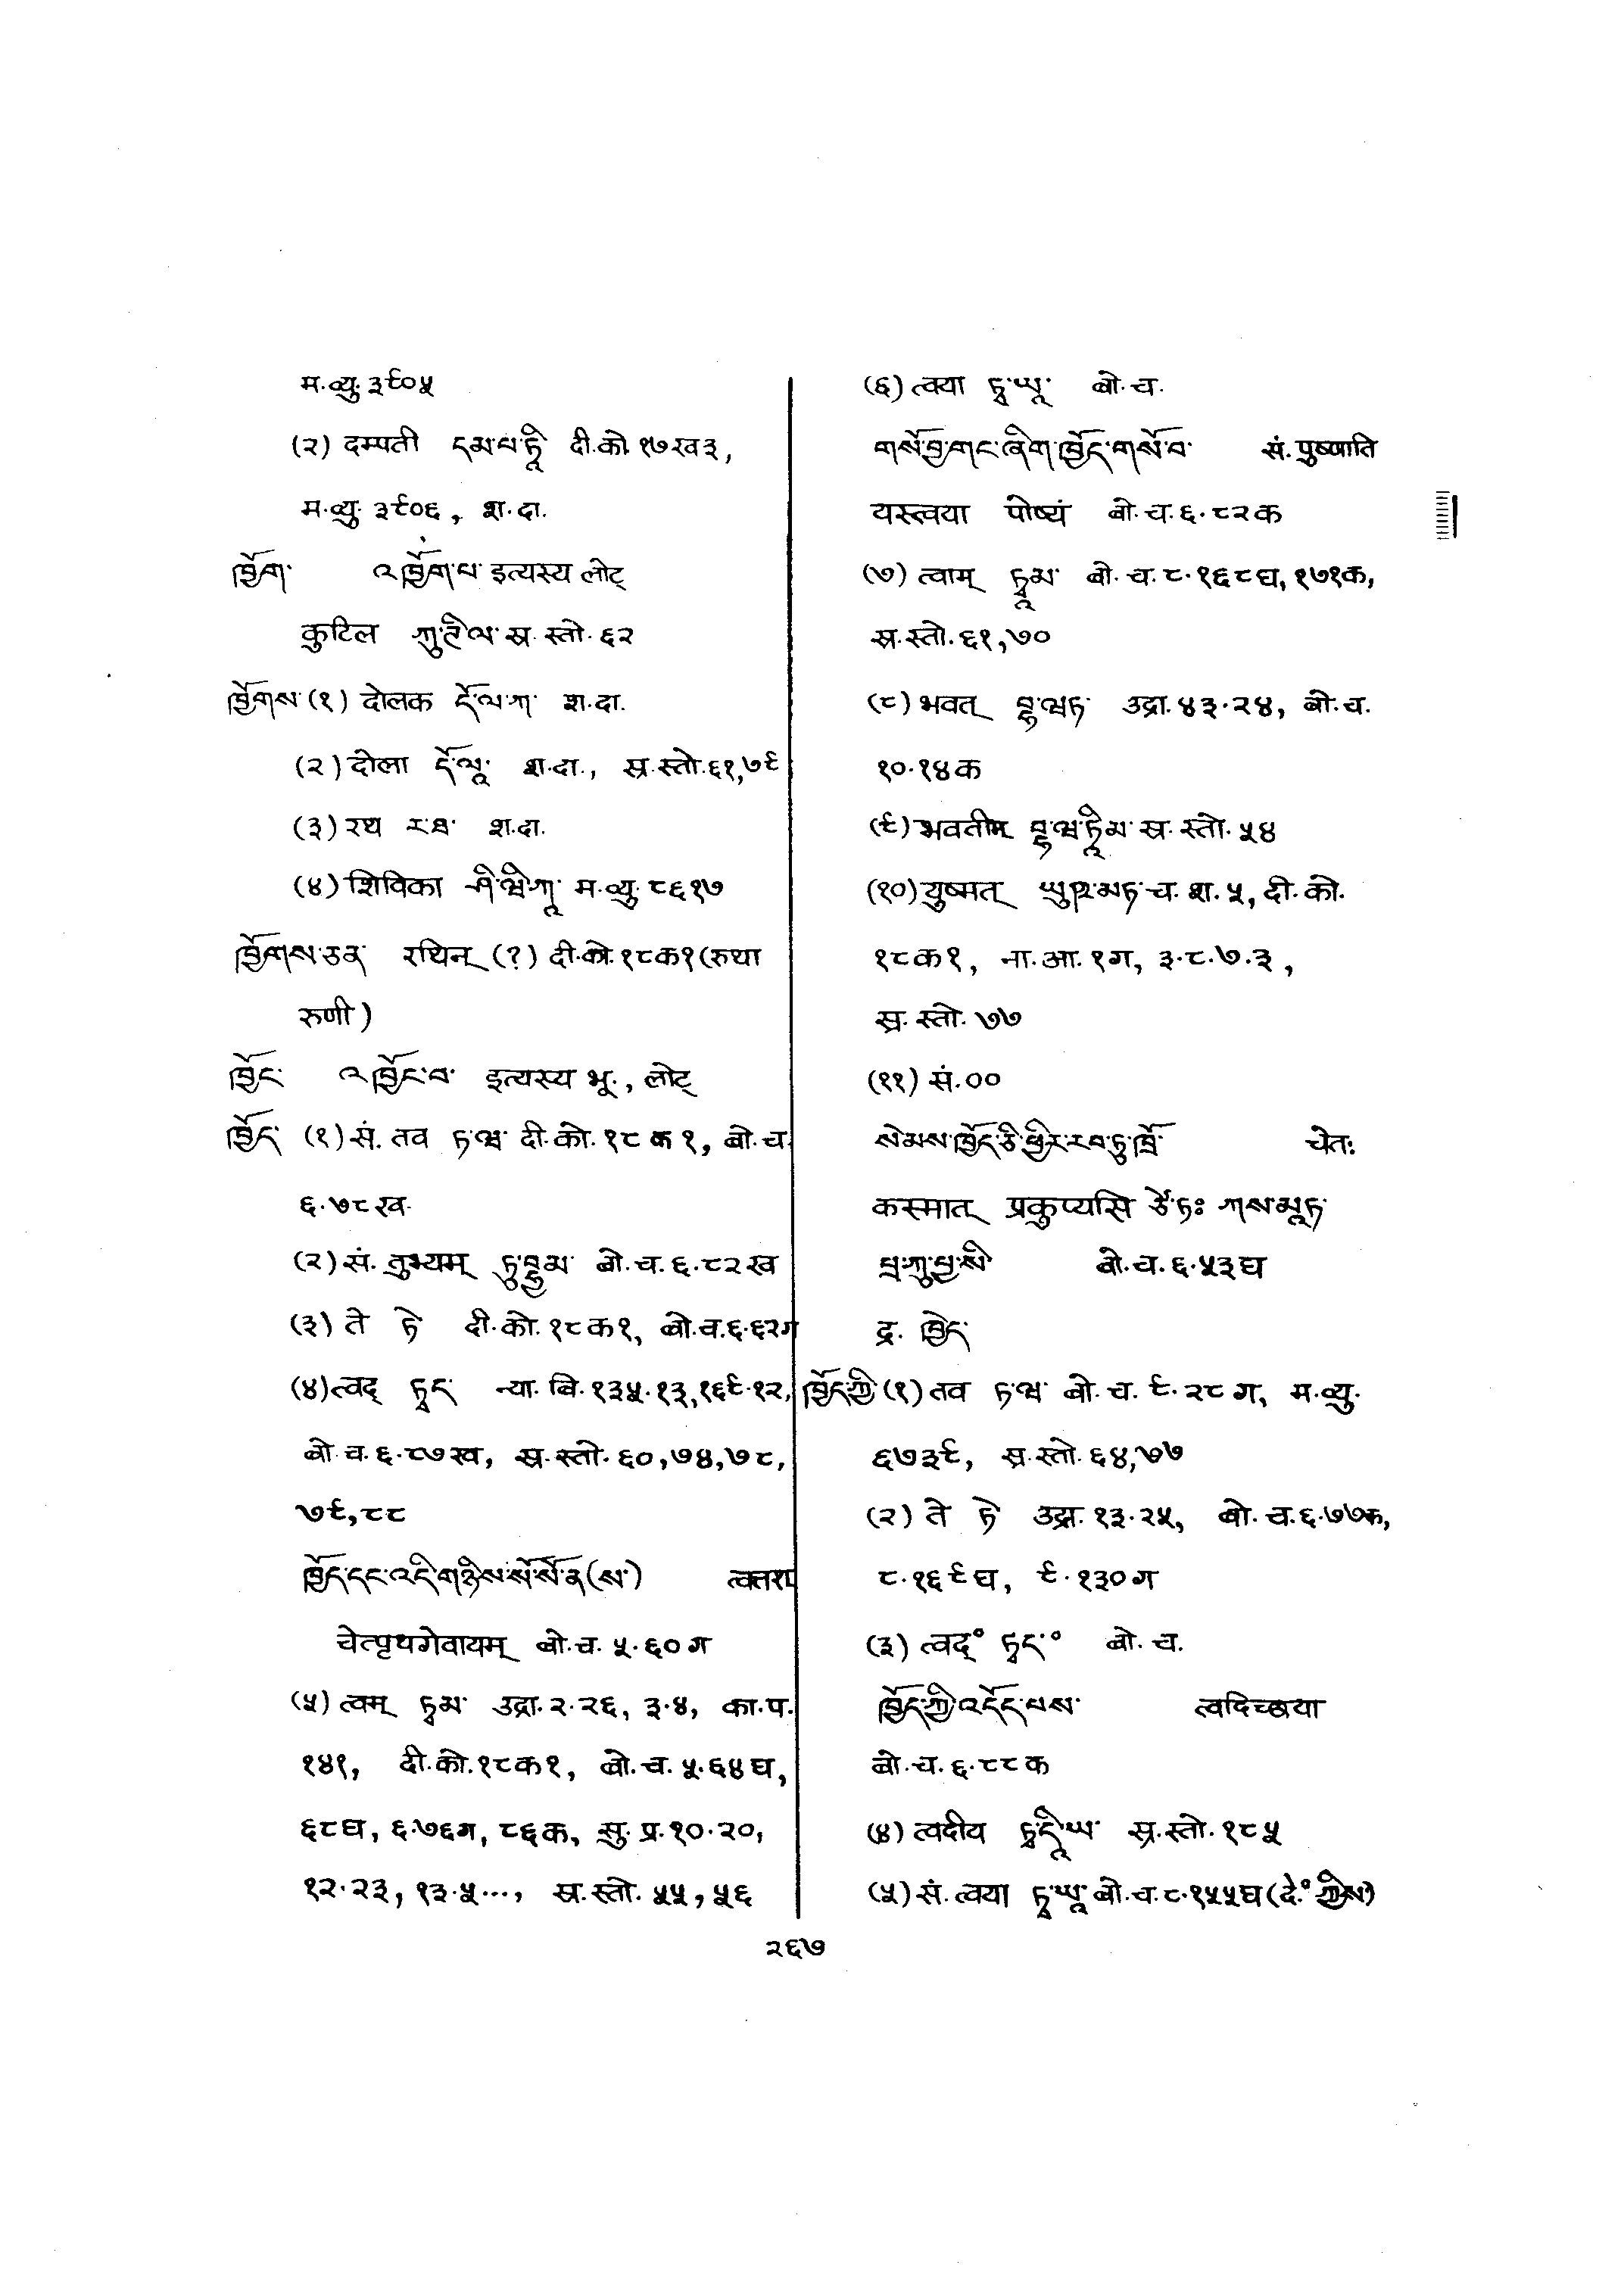 म.व्यु. ३९०५
(२) दम्पती དམ་པ་ཏཱི དी.को. १७ख३,
म.व्यु. ३९०६, श.दा.
ཁྱོག་ འཁྱོག་པ་ इत्यस्य लोट्
कुटिल ཀུ་ཊི་ལ་ स्र.स्तो. ६२
ཁྱོགས་ (१) दोलक དོ་ལ་ཀ་ श.दा.
(२) दोला དོ་ལཱ་ श.दा., स्र.स्तो.६१,७९
(३) रथ ར་ཐ་ श.दा.
(४) शिविका ཤི་ཝི་ཀཱ་ म.व्यु. ८६१७
ཁྱོགས་ཅན་ रथिन् (?) दी.को.१८क१(रुथा
रुणी)
ཁྱོང་ འཁྱོང་བ་ इत्यस्य भू., लोट्
ཁྱོད་ (१) सं. तव ཏ་ཝ་ दी.को. १८क१, बो.च.
६.७८ख
(२) सं. तुभ्यम् ཏུ་བྷྱམ་ बो.च.६.८२ख
(३) ते ཏེ दी.को.१८क१, बो.च.६.६२ग
(४) त्वद् ཏྭད་ न्या.बि.१३५.१३,१६९.१२,
बो.च.६.८७ख, स्र.स्तो.६०,७४,७८,
७९,८८
ཁྱོད་དང་འདི་གཉིས་སོ་སོ་ན(ས་) त्वत्तश्
चेत्पृथगेवायम् बो.च. ५.६०ग
(५) त्वम् ཏྭམ་ उद्रा.२.२६, ३.४, का.प.
१४१, दी.को.१८क१, बो.च. ५.६४घ,
६८घ, ६.७६ग, ८६क, सु.प्र.१०.२०,
१२.२३, १३.५..., स्र.स्तो. ५५, ५६
(६) त्वया ཏྭ་ཡཱ་ बो.च.
གསོ་བྱ་གང་ཞིག་ཁྱོད་གསོ་བ་ सं.पुष्णाति
यस्त्वया पोष्यं बो.च.६.८२क
(७) त्वाम् ཏྭཱམ་ बो.च.८.१६८घ,१७१क,
स्र.स्तो.६१,७०
(८) भवत् བྷ་ཝཏ་ उद्रा.४३.२४, बो.च.
१०.१४क
(९) भवतीम् བྷ་ཝ་ཏཱིམ་ स्र.स्तो.५४
(१०) युष्मत् ཡུཥྨཏ་ च.श.५, दी.को.
१८क१, ना.आ.१ग, ३.८.७.३,
स्र.स्तो.७७
(११) सं.००
སེམས་ཁྱོད་ཅི་ཕྱིར་རབ་ཏུ་ཁྲོ་ चेतः
कस्मात् प्रकुप्यसि ཙེ་ཏཿ ཀས་མཱཏ་
པྲ་ཀུ་པྱ་སི་ बो.च.६.५३घ
द्र. ཁྱེད་
ཁྱོད་ཀྱི (१) तव ཏ་ཝ་ बो.च.९.२८ग, म.व्यु.
६७३९, स्र.स्तो.६४,७७
(२) ते ཏེ उद्रा.१३.२५, बो.च.६.७७क,
८.१६९घ, ९.१३०ग
(३) त्वद्° ཏྭད་° बो.च.
ཁྱོད་ཀྱི་འདོད་པས་ त्वदिच्छया
बो.च.६.८८क
(४) त्वदीय ཏྭ་དཱི་ཡ་ स्र.स्तो.१८५
(५) सं. त्वया ཏྭ་ཡཱ་ बो.च.८.१५५घ(दे.° ཀྱིས་)
२६७